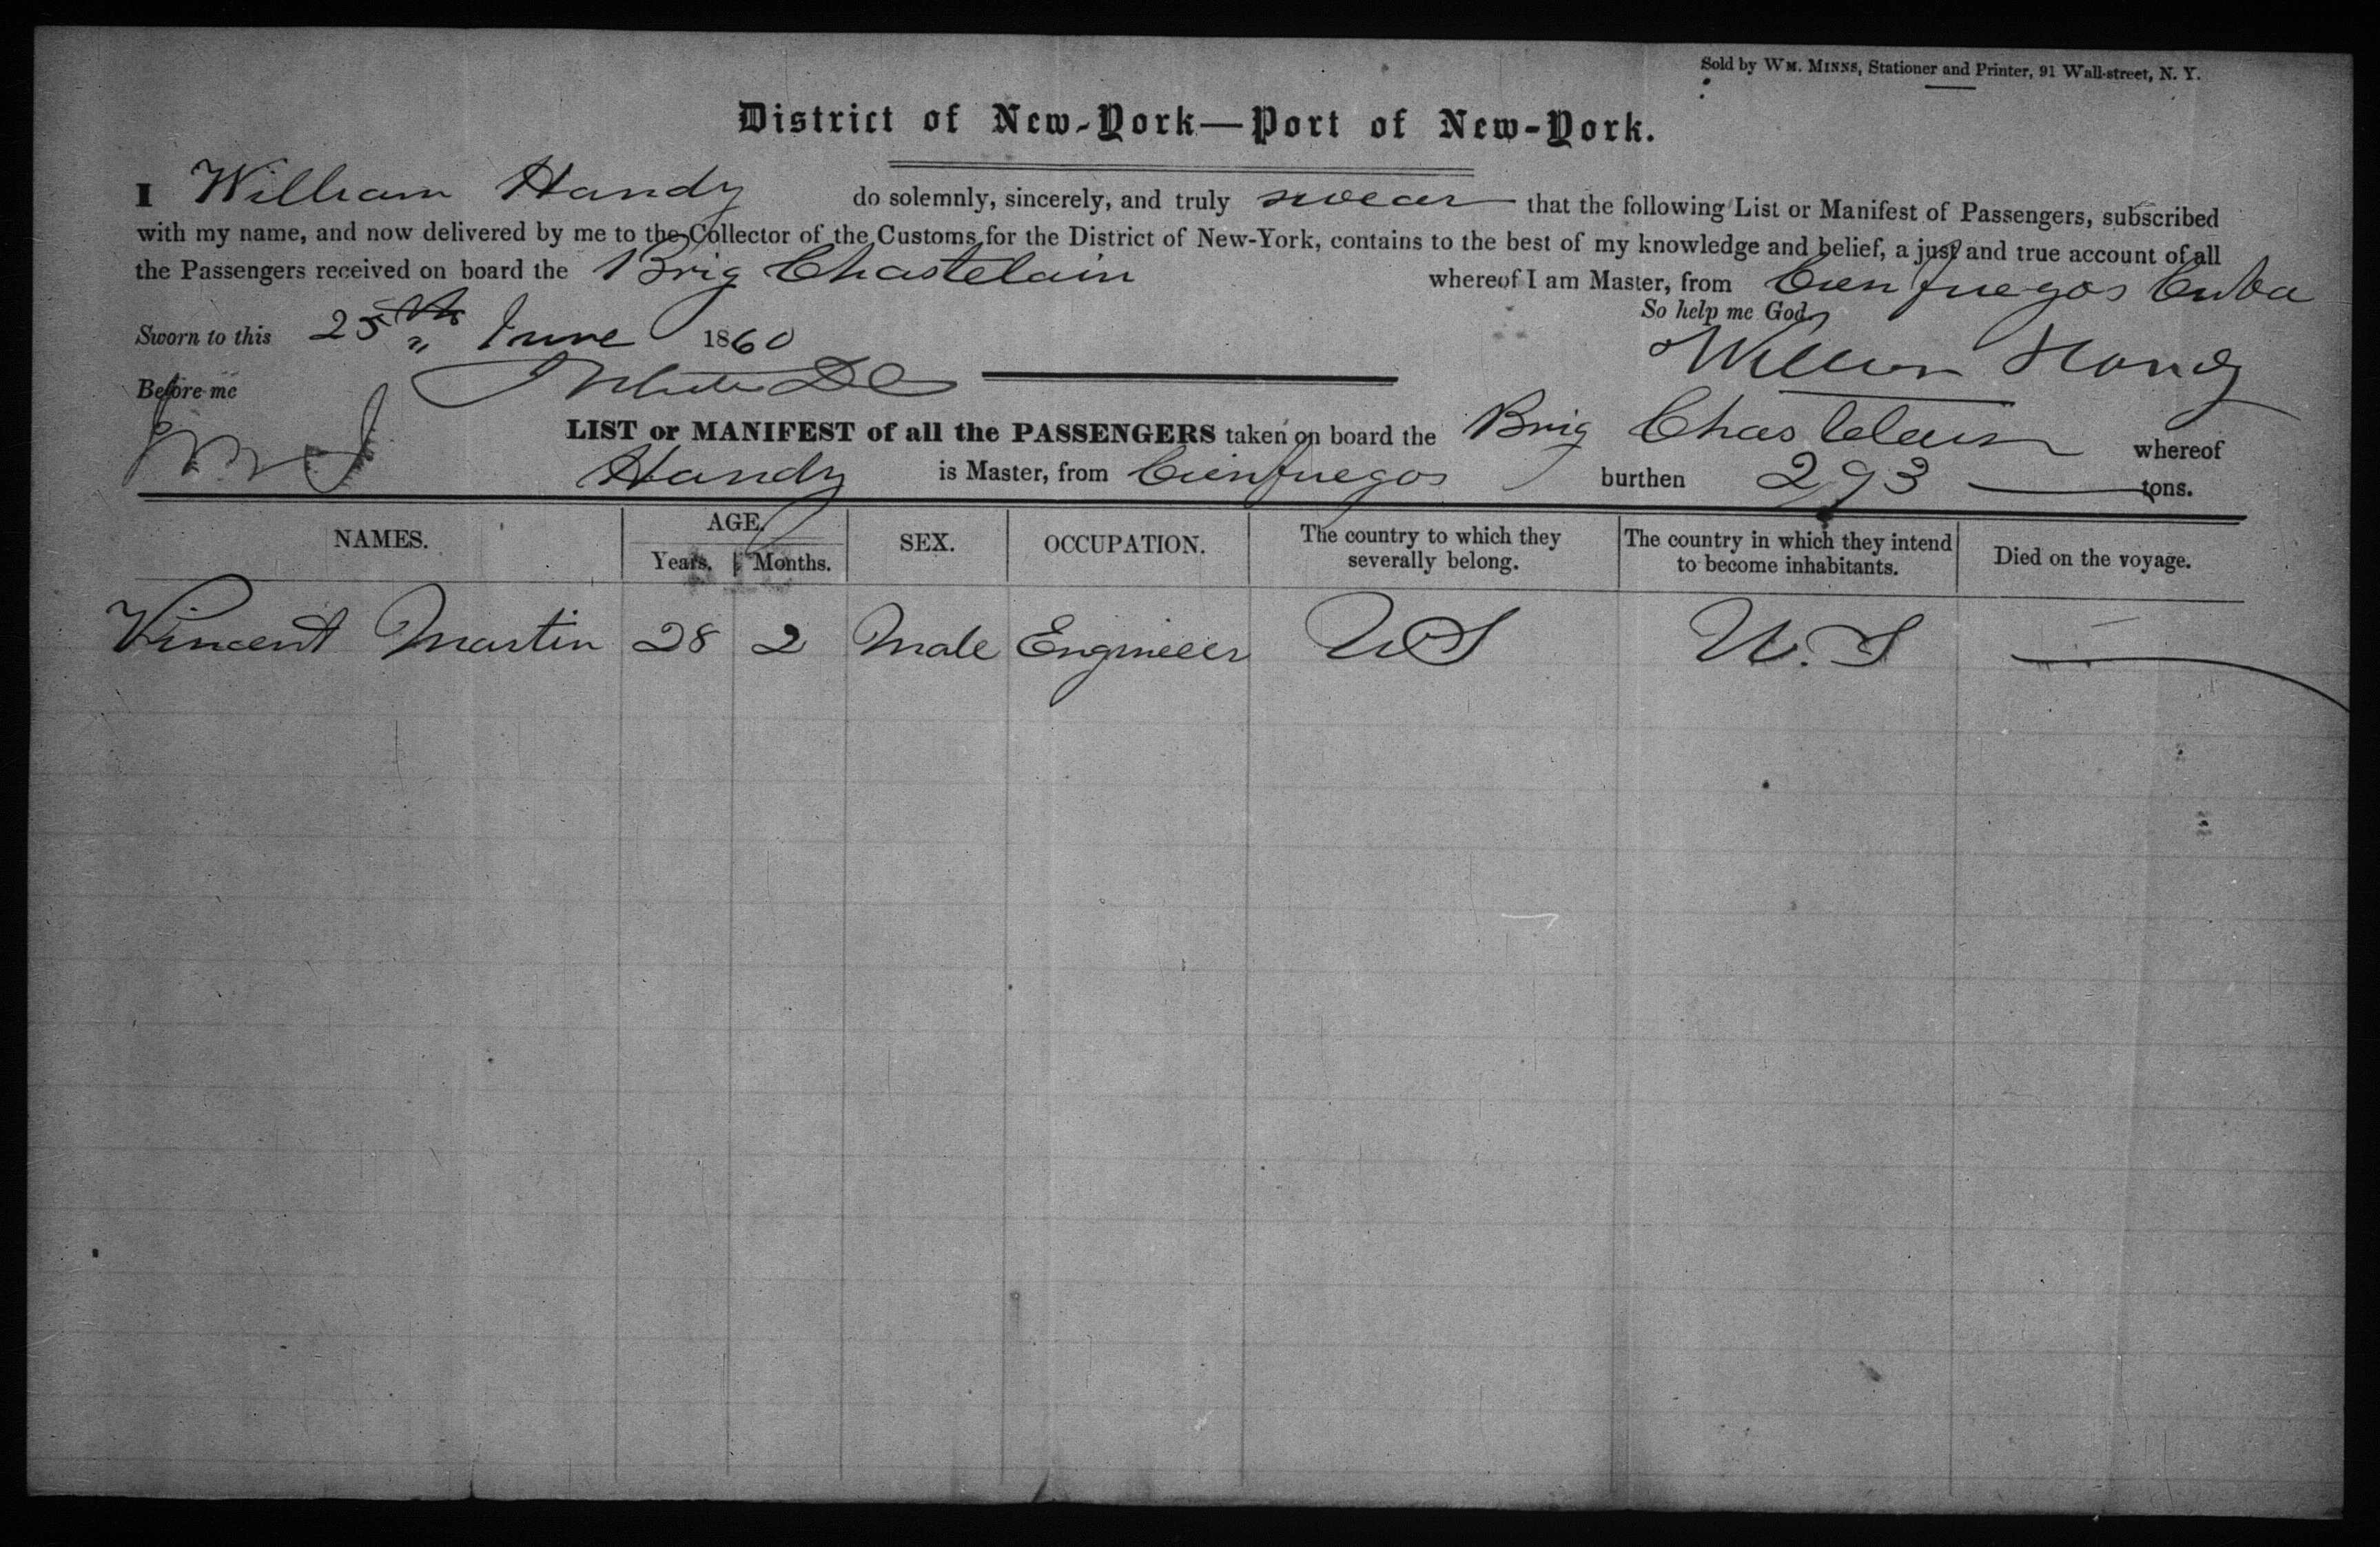 Sold by WM. MINNS, Stationer and Printer, 91 Wall-street, N. Y.
District of New-York—Port of New-York.
I William Handy do solemnly, sincerely, and truly swear that the following List or Manifest of Passengers, subscribed
with my name, and now delivered by me to the Collector of the Customs for the District of New-York, contains to the best of my knowledge and belief, a just and true account of all
the Passengers received on board the Brig Chastelain whereof I am Master, from Cienfuegos Cuba
So help me God.
Sworn to this 25th June 1860
William Handy
Before me
LIST or MANIFEST of all the PASSENGERS taken on board the Brig Chastelain whereof
Handy is Master, from Cienfuegos burthen 293 tons.
NAMES. AGE. SEX. OCCUPATION. The country to which they severally belong. The country in which they intend to become inhabitants. Died on the voyage.
Years. Months.
Vincent Martin 28 2 Male Engineer US U.S —